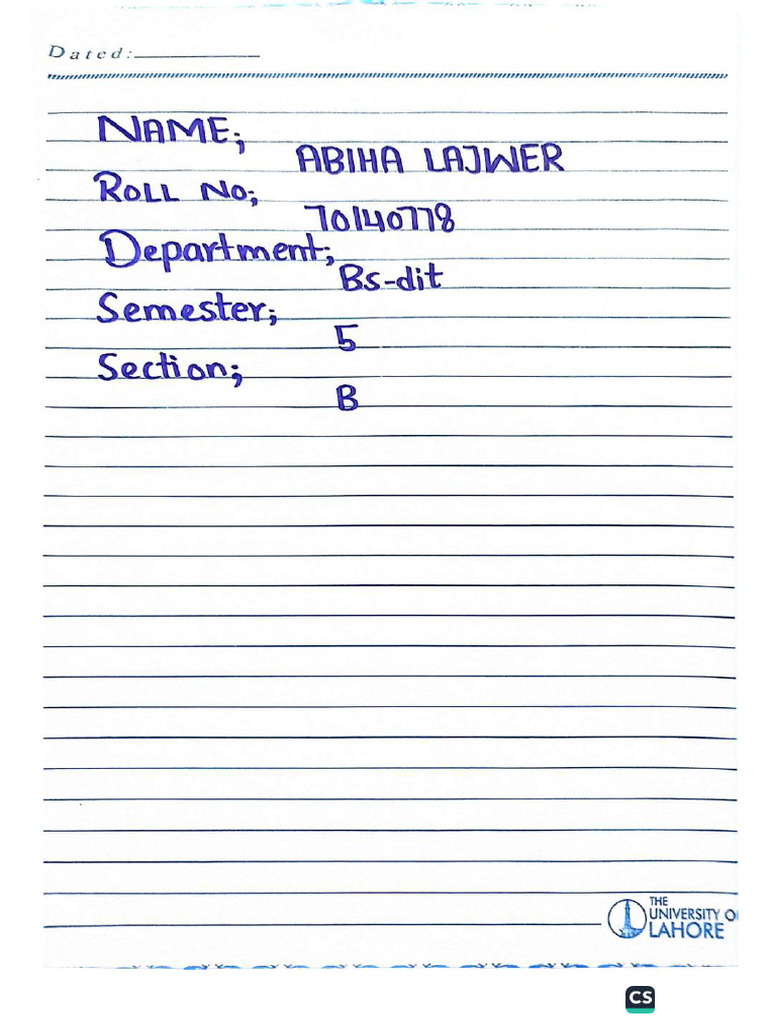 Dated:
NAME;
ABIHA LAJWER
ROLL No;
70140778
Department;
Bs-dit
Semester;
5
Section;
B
THE
UNIVERSITY O
LAHORE
CS